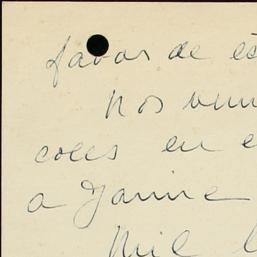 favor de és
Nos vem
coles en e
a Janine
Mil